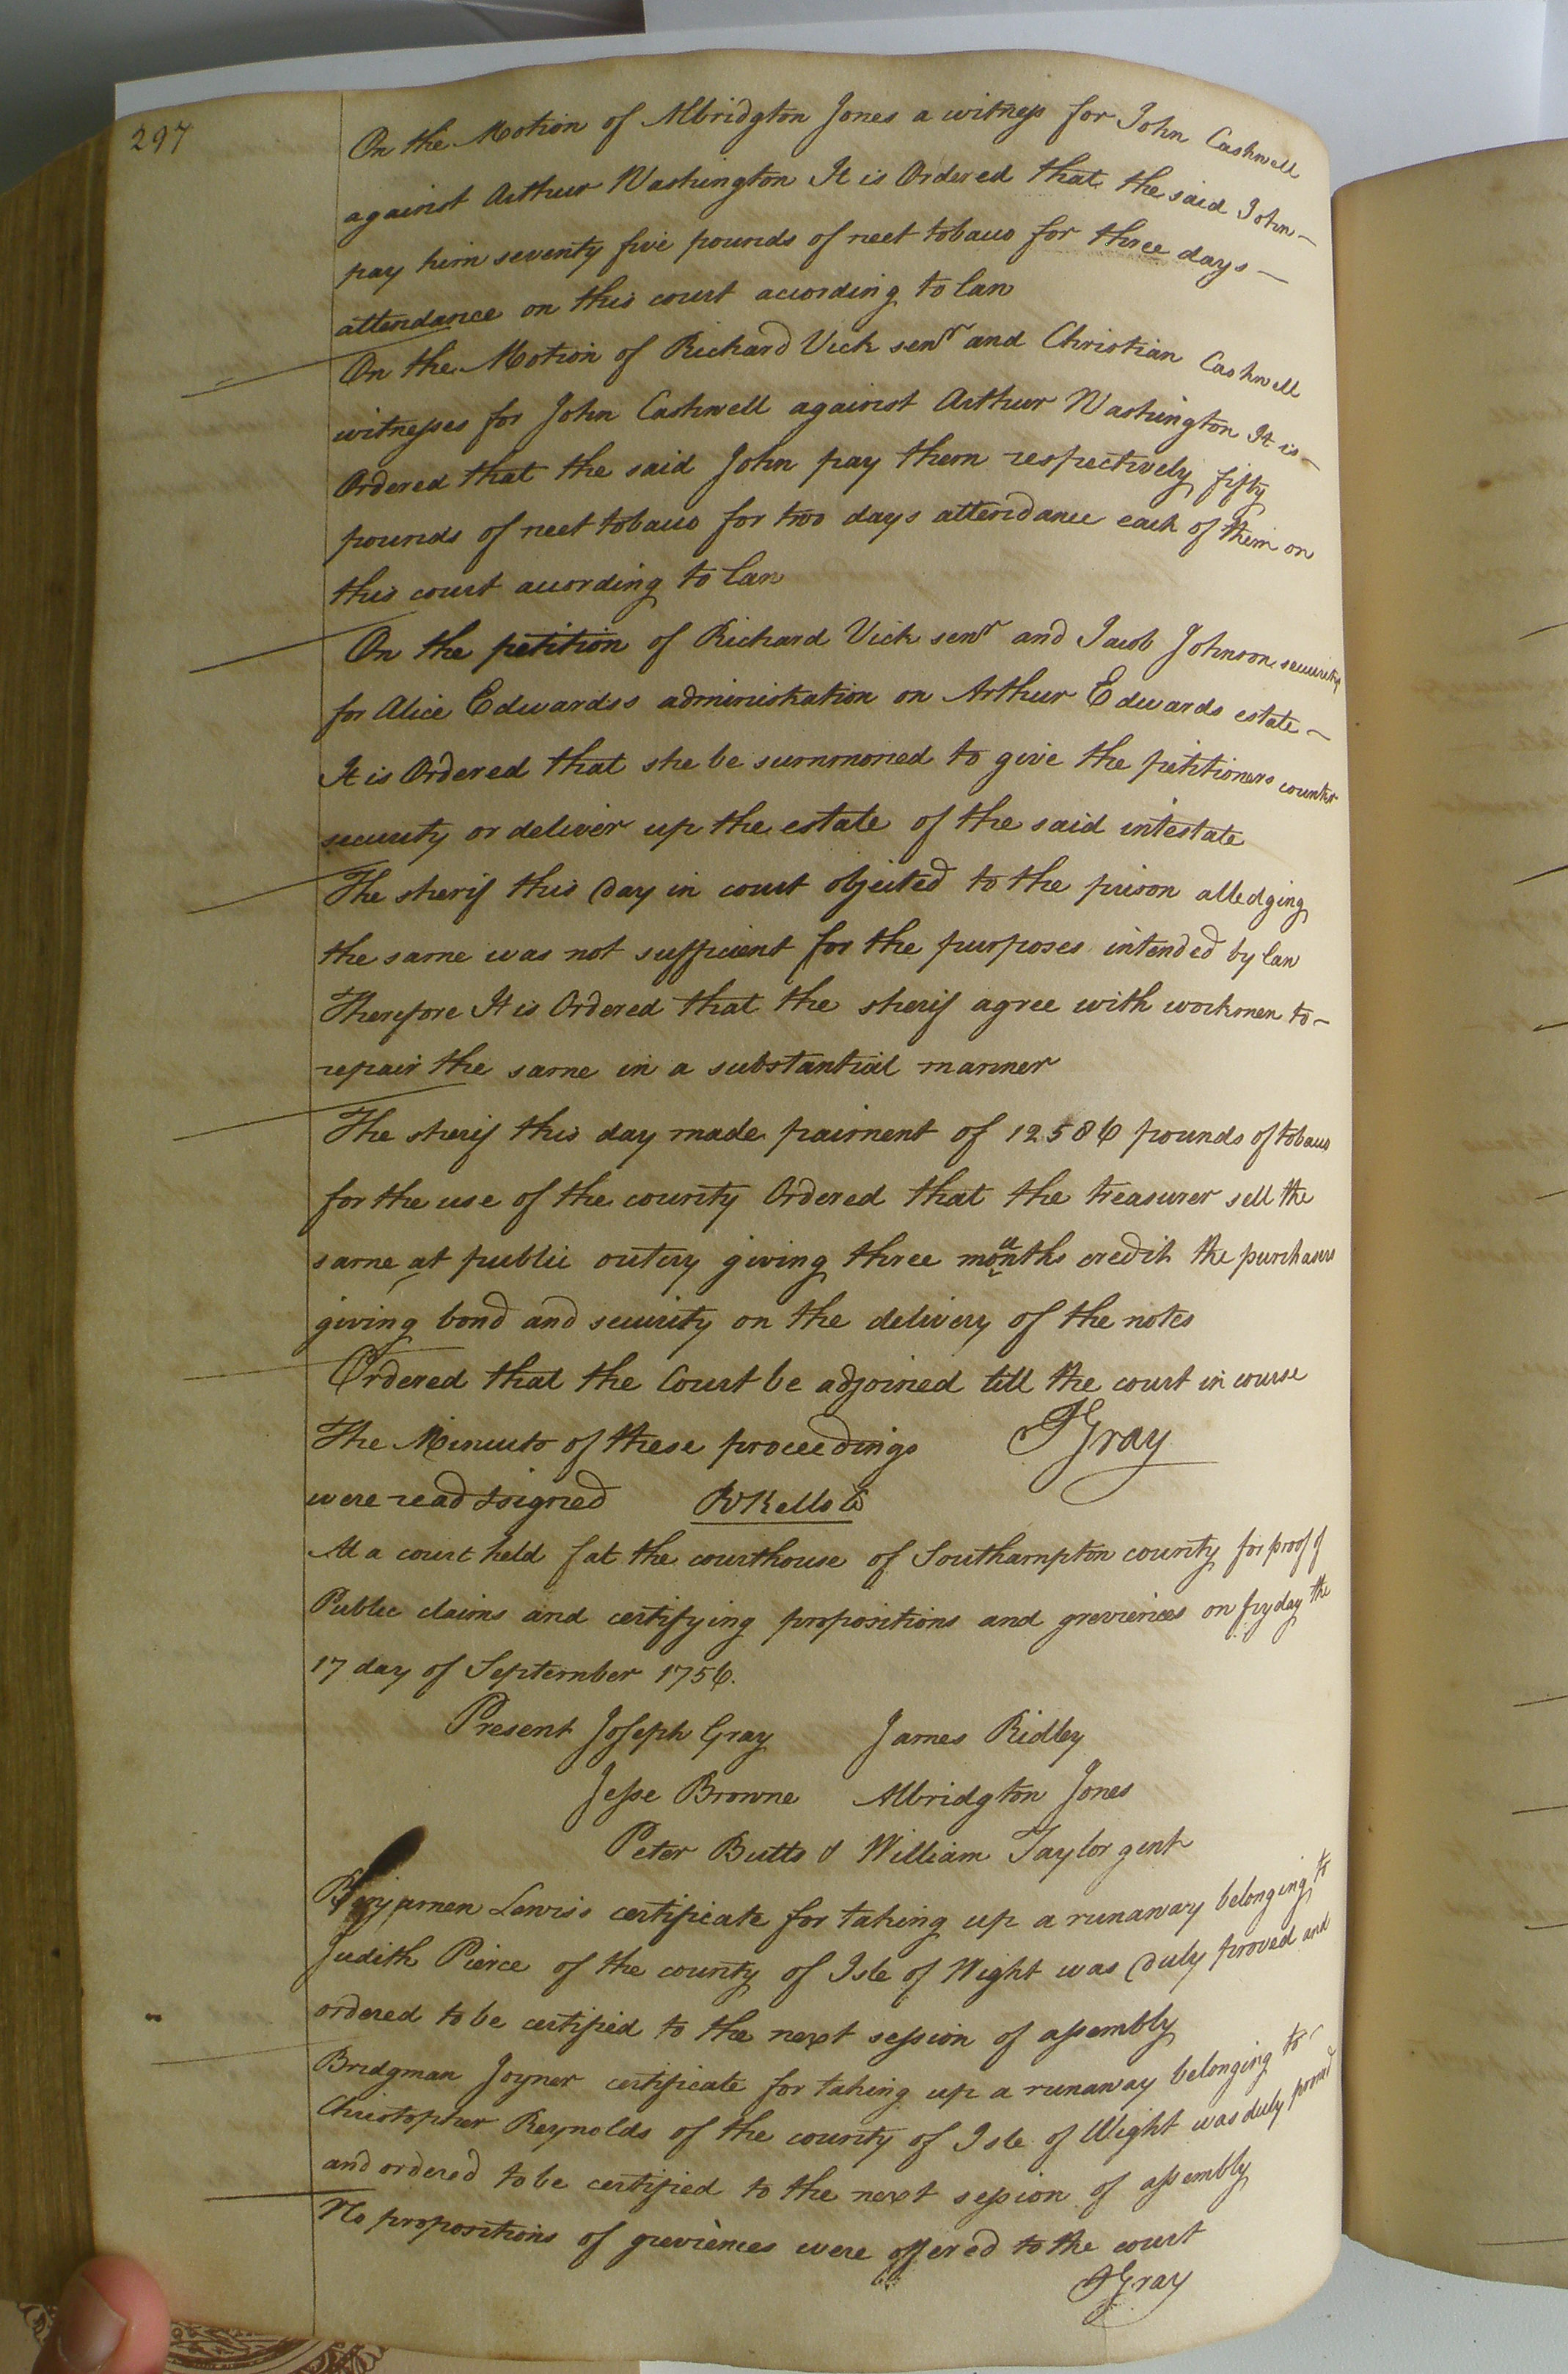 297
On the Motion of Albridgton Jones a witness for John Cashwell
against Arthur Washington It is Ordered that the said John -
pay him seventy five pounds of neet tobacco for three days -
attendance on this court according to law
On the Motion of Richard Vick senr and Christian Cashwell
witnesses for John Cashwell against Arthur Washington It is -
Ordered that the said John pay them respectively fifty
pounds of neet tobacco for two days attendance each of them on
this court according to law
On the petition of Richard Vick senr and Jacob Johnson security
for Alice Edwardss administration on Arthur Edwards estate -
It is Ordered that she be summoned to give the petitioners counter
security or deliver up the estate of the said intestate
The sherif this day in court objected to the prison alledging
the same was not sufficient for the purposes intended by law
Therefore It is Ordered that the sherif agree with workmen to -
repair the same in a substantial manner
The sherif this day made paiment of 12586 pounds of tobacco
for the use of the county Ordered that the treasurer sell the
same at public outcry giving three months credit the purchasers
giving bond and security on the delivery of the notes
Ordered that the Court be adjoined till the court in course
The Minuets of these proceedings JGray
were read & signed RKello
At a court held f at the courthouse of Southampton county for proof of
Public claims and certifying propositions and greviences on fryday the
17 day of September 1756.
Present Joseph Gray James Ridley
Jesse Browne Albridgton Jones
Peter Butts & William Taylor gent
Benjamen Lewis's certificate for taking up a runaway belonging to
Judith Pierce of the county of Isle of Wight was duly proved and
ordered to be certified to the next session of assembly
Bridgman Joyner certificate for taking up a runaway belonging to
Christopher Reynolds of the county of Isle of Wight was duly proved
and ordered to be certified to the next session of assembly
No propositions of greviences were offered to the court
JGray